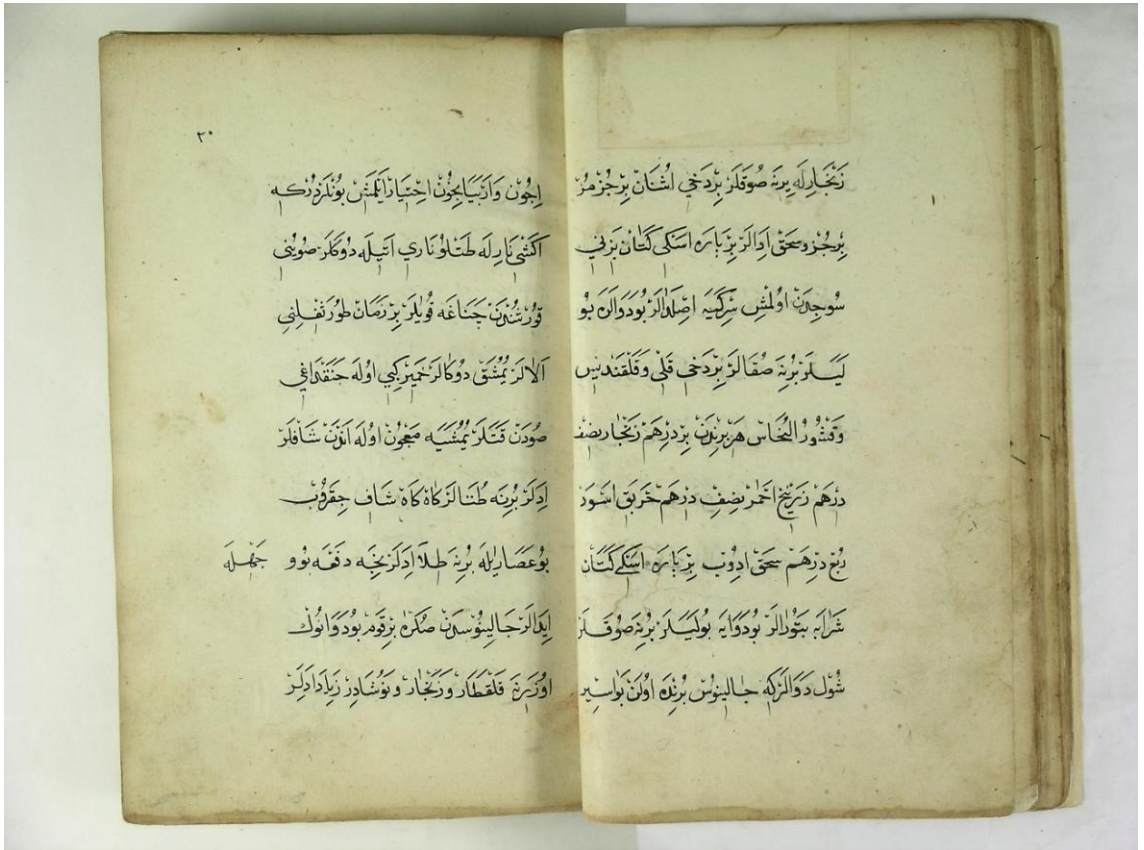 زنجارله برنه صوقلر بردخي اشنان برجز مر
برجز وسحق ادالر بر باره اسكى كتان بزني
سوجدن اولمش سركيه اصلدالر بودوالره بو
ليسلر برنه صقالر بردخي قلى وقلقنديس
وقشور النحاس هر برندن بر درهم زنجار نصف
درهم زرنيخ احمر نصف درهم خربق اسود
ربع درهم سحق ادوب بر باره اسكى كتان
شرابه بتورالر بودوايه بوليسلر برنه صوقلر
شول دوالركه جالينوس برنده اولن بواسير
٢٠
اجون وارببياسجون اختيار ايلمش بونلردركه
اكشى نارله طتلو ناري اتيله دوكلر صويني
قورشندن چناغه قويلر بر زمان طورر ثفلني
الالر يمشق دوكالر خمير كبي اوله جنقداغي
صودن قتلر يمشيه معجون اوله اندن شافلر
ادلر برنه طتالر كاه كاه شاف جقروب
بو عصاريله برنه طلا ادلر نيجه دفعه بوو جهله
ايدالر جالينوسدن صكره بر قوم بودوانوك
اوزرنه قلقطار وزنجار ونوشادر زياد ادلر